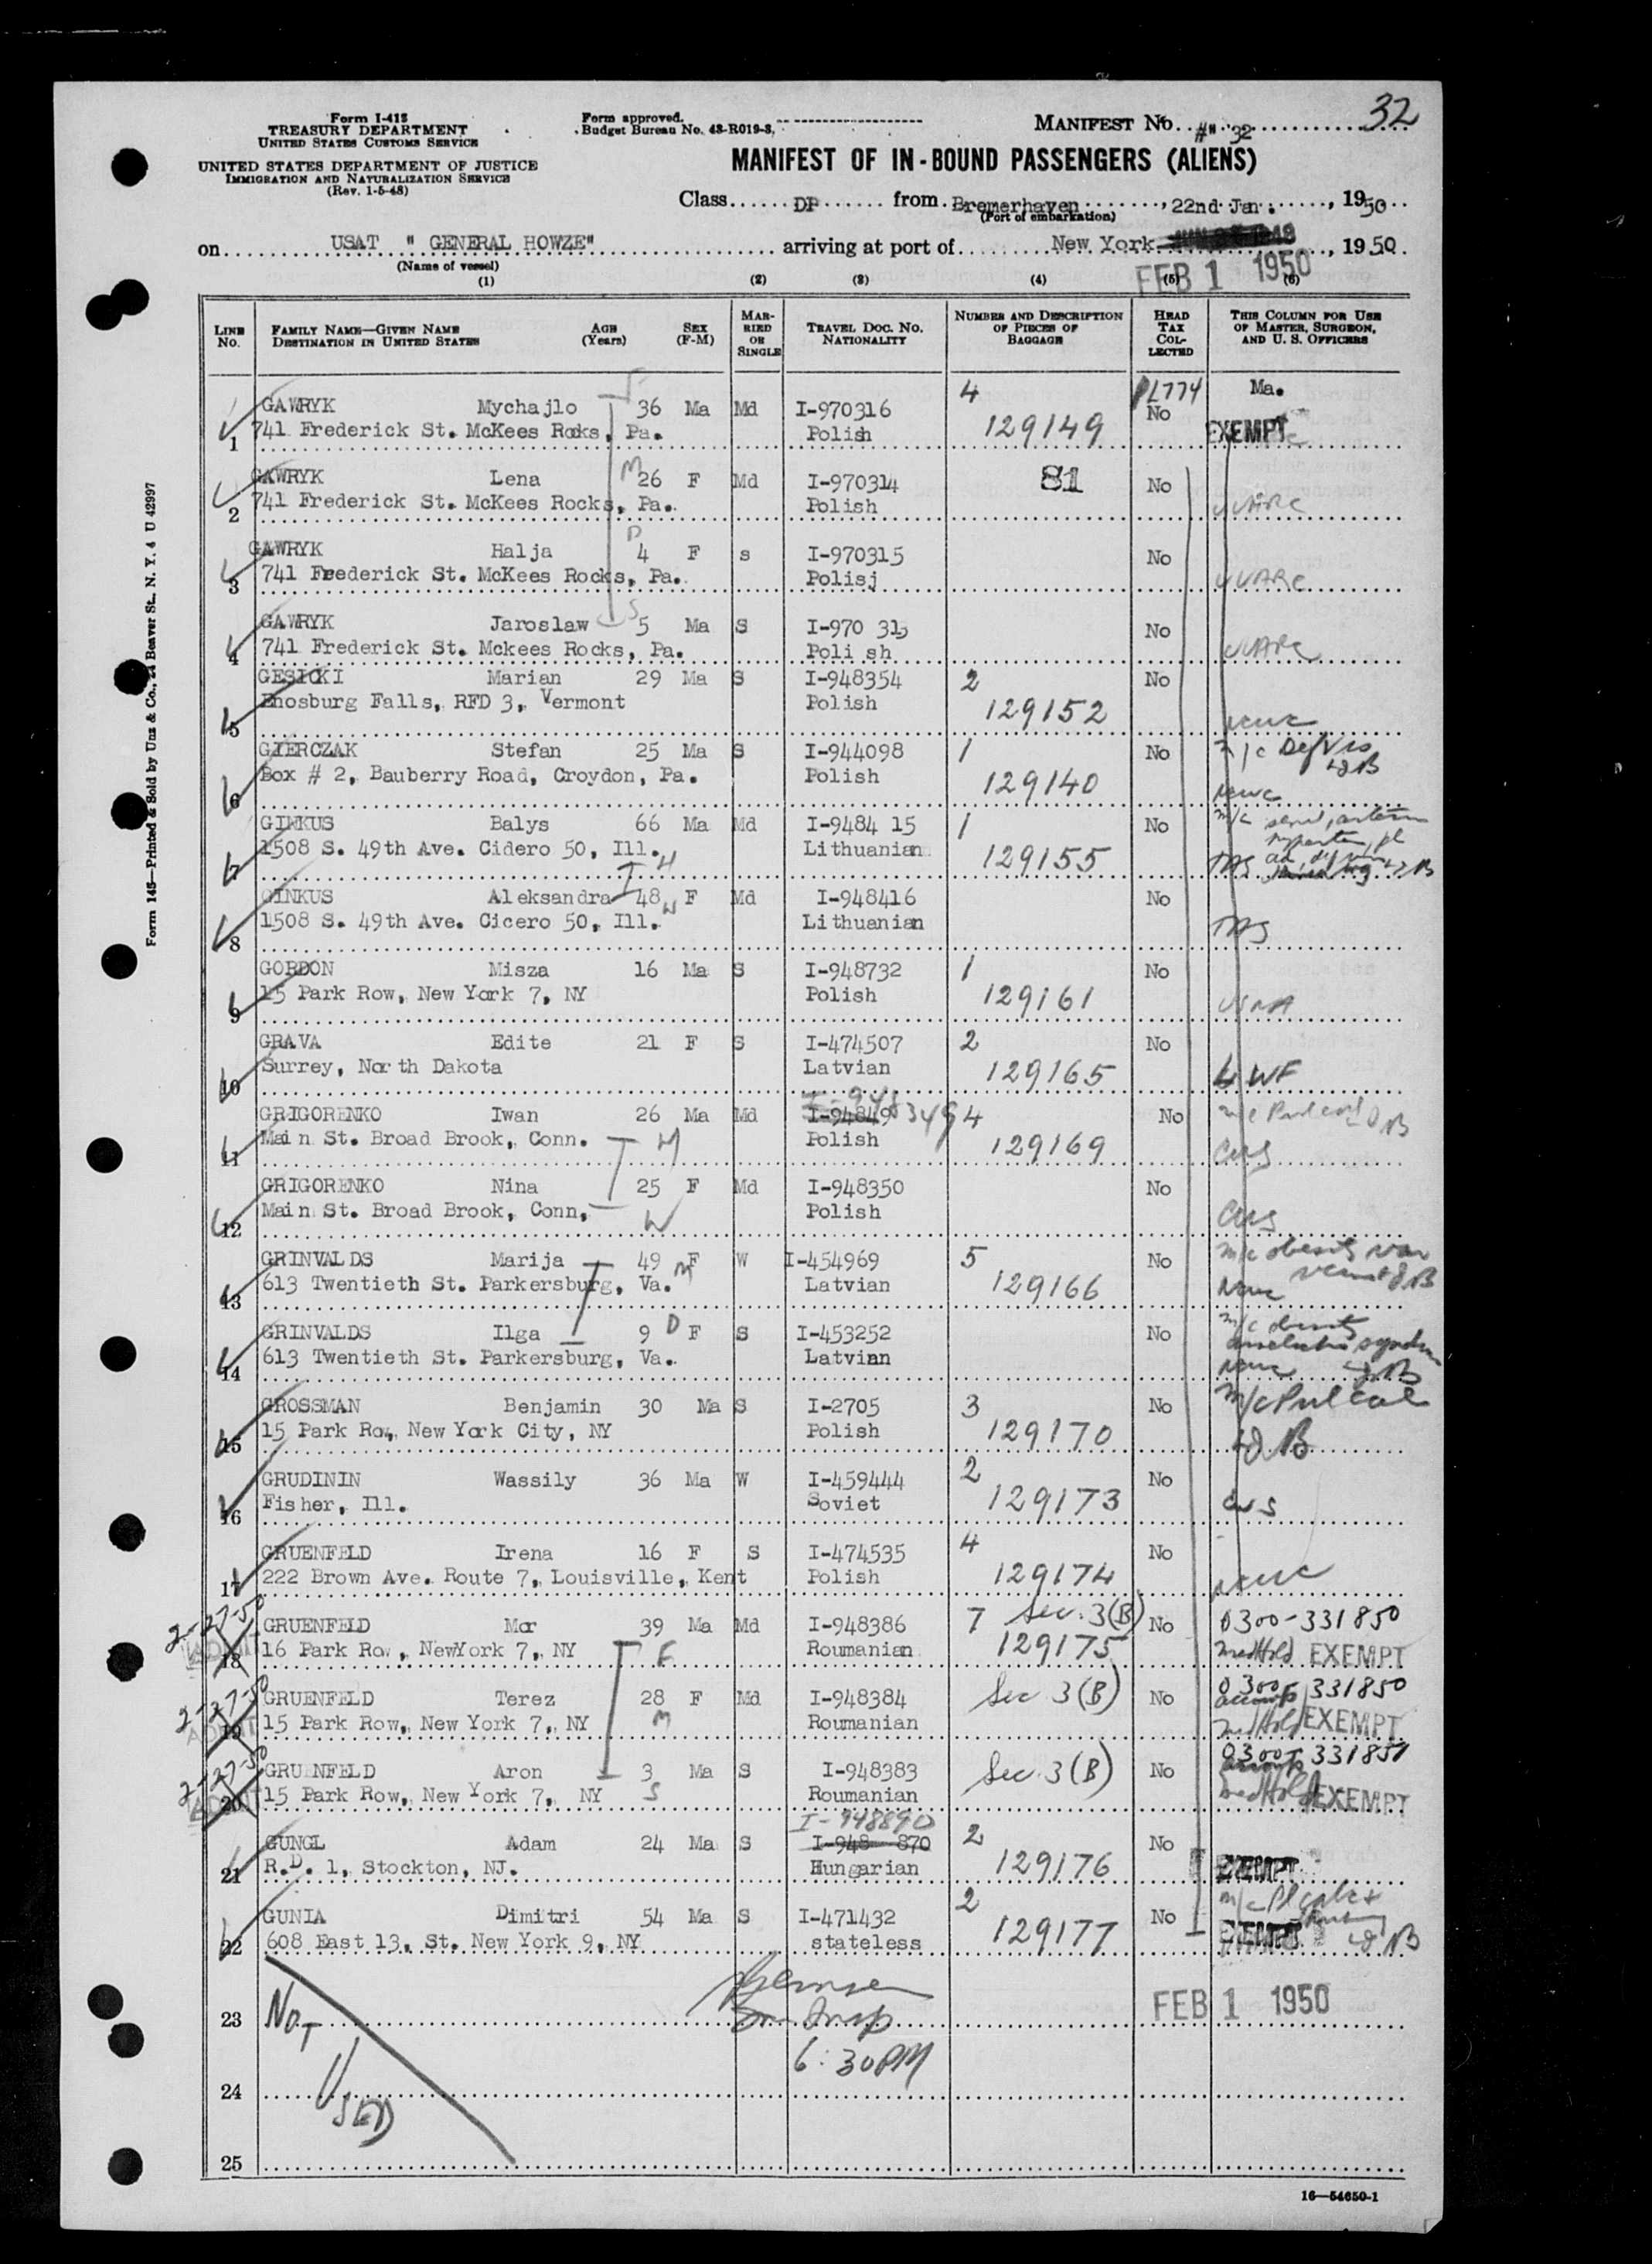 32
Form I-418
TREASURY DEPARTMENT
UNITED STATES CUSTOMS SERVICE
UNITED STATES DEPARTMENT OF JUSTICE
IMMIGRATION AND NATURALIZATION SERVICE
(Rev. 1-5-48)
Form approved.
Budget Bureau No. 43-R019-3.
MANIFEST No. #" 32
MANIFEST OF IN-BOUND PASSENGERS (ALIENS)
Class DP from Bremerhaven, 22nd Jan., 1950
(Port of embarkation)
on USAT " GENERAL HOWZE" arriving at port of New York, 1950
(Name of vessel)
FEB 1 1950
(1) (2) (3) (4) (5) (6)
LINE No. FAMILY NAME—GIVEN NAME DESTINATION IN UNITED STATES AGE (Years) SEX (F-M) MARRIED OR SINGLE TRAVEL DOC. No. NATIONALITY NUMBER AND DESCRIPTION OF PIECES OF BAGGAGE HEAD TAX COLLECTED THIS COLUMN FOR USE OF MASTER, SURGEON, AND U. S. OFFICERS
F 4 PL774 Ma.
GAWRYK Mychajlo 36 Ma Md I-970316 No
1 741 Frederick St. McKees Rocks, Pa. Polish 129149 EXEMPT
M
GAWRYK Lena 26 F Md I-970314 81 No
2 741 Frederick St. McKees Rocks, Pa. Polish
D
GAWRYK Halja 4 F s I-970315 No
3 741 Frederick St. McKees Rocks, Pa. Polisj
GAWRYK Jaroslaw S 5 Ma S I-970 313 No
4 741 Frederick St. Mckees Rocks, Pa. Poli sh
GESICKI Marian 29 Ma S I-948354 2 No
5 Enosburg Falls, RFD 3, Vermont Polish 129152
GIERCZAK Stefan 25 Ma S I-944098 1 No m/c Def Vis
6 Box # 2, Bauberry Road, Croydon, Pa. Polish 129140
GINKUS Balys 66 Ma Md I-9484 15 1 No
7 1508 S. 49th Ave. Cidero 50, Ill. H Lithuanian 129155
GINKUS Aleksandra 48 W F Md I-948416 No
8 1508 S. 49th Ave. Cicero 50, Ill. Lithuanian
GORDON Misza 16 Ma S I-948732 1 No
9 15 Park Row, New York 7, NY Polish 129161
GRAVA Edite 21 F S I-474507 2 No
10 Surrey, North Dakota Latvian 129165 LWF
GRIGORENKO Iwan 26 Ma Md I-948349 4 No
11 Main St. Broad Brook, Conn. H Polish 129169 CWS
GRIGORENKO Nina 25 F Md I-948350 No
12 Main St. Broad Brook, Conn, W Polish CWS
GRINVALDS Marija 49 F W I-454969 5 No
13 613 Twentieth St. Parkersburg, Va. M Latvian 129166
GRINVALDS Ilga 9 D F S I-453252 No
14 613 Twentieth St. Parkersburg, Va. Latvian
GROSSMAN Benjamin 30 Ma S I-2705 3 No
15 15 Park Row, New York City, NY Polish 129170
GRUDININ Wassily 36 Ma W I-459444 2 No
16 Fisher, Ill. Soviet 129173 CWS
GRUENFELD Irena 16 F S I-474535 4 No
17 222 Brown Ave. Route 7, Louisville, Kent Polish 129174
2-27-50 GRUENFELD Mor 39 Ma Md I-948386 7 Sec. 3(B) No 0300-331850
ADMIT 18 16 Park Row, NewYork 7, NY F Roumanian 129175 med Hold EXEMPT
2-27-50 GRUENFELD Terez 28 F Md I-948384 Sec 3(B) No 0300/331850
ADMIT 19 15 Park Row, New York 7, NY M Roumanian med Hold EXEMPT
2-27-50 GRUENFELD Aron 3 Ma S I-948383 Sec. 3(B) No 0300-331851
ADMIT 20 15 Park Row, New York 7, NY S Roumanian med Hold EXEMPT
I-948890
GUNGL Adam 24 Ma S I-948 870 2 No
21 R.D. 1, Stockton, NJ. Hungarian 129176 EXEMPT
GUNIA Dimitri 54 Ma S I-471432 2 No
22 608 East 13, St. New York 9, NY stateless 129177 EXEMPT
23 NOT FEB 1 1950
6:30 PM
24 USED
25
16—54650-1
Form 145—Printed & Sold by Unz & Co., 24 Beaver St., N. Y. 4 U 42997